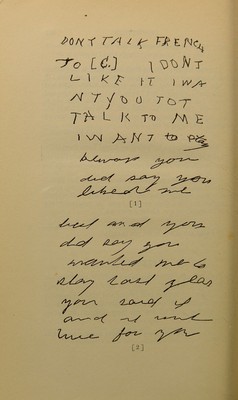 DONT TALK FRENCH
TO [C.] I DONT
LIKE IT I WA
NT YOU TOT
TALK TO ME
I WANT to play
always you
did say you
liked me
[1]
but and you
did say you
wanted me to
stay last year
you said if
and it wont
love for you
[2]